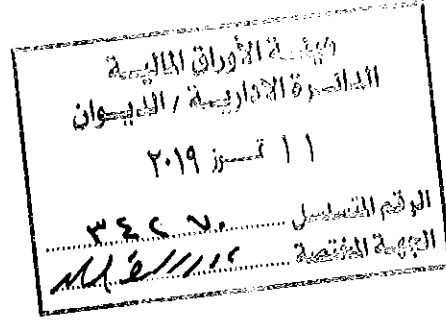 هيئة الأوراق المالية
الدائرة الادارية / الديوان
١١ تموز ٢٠١٩
الرقم المتسلسل
الجهة المختصة